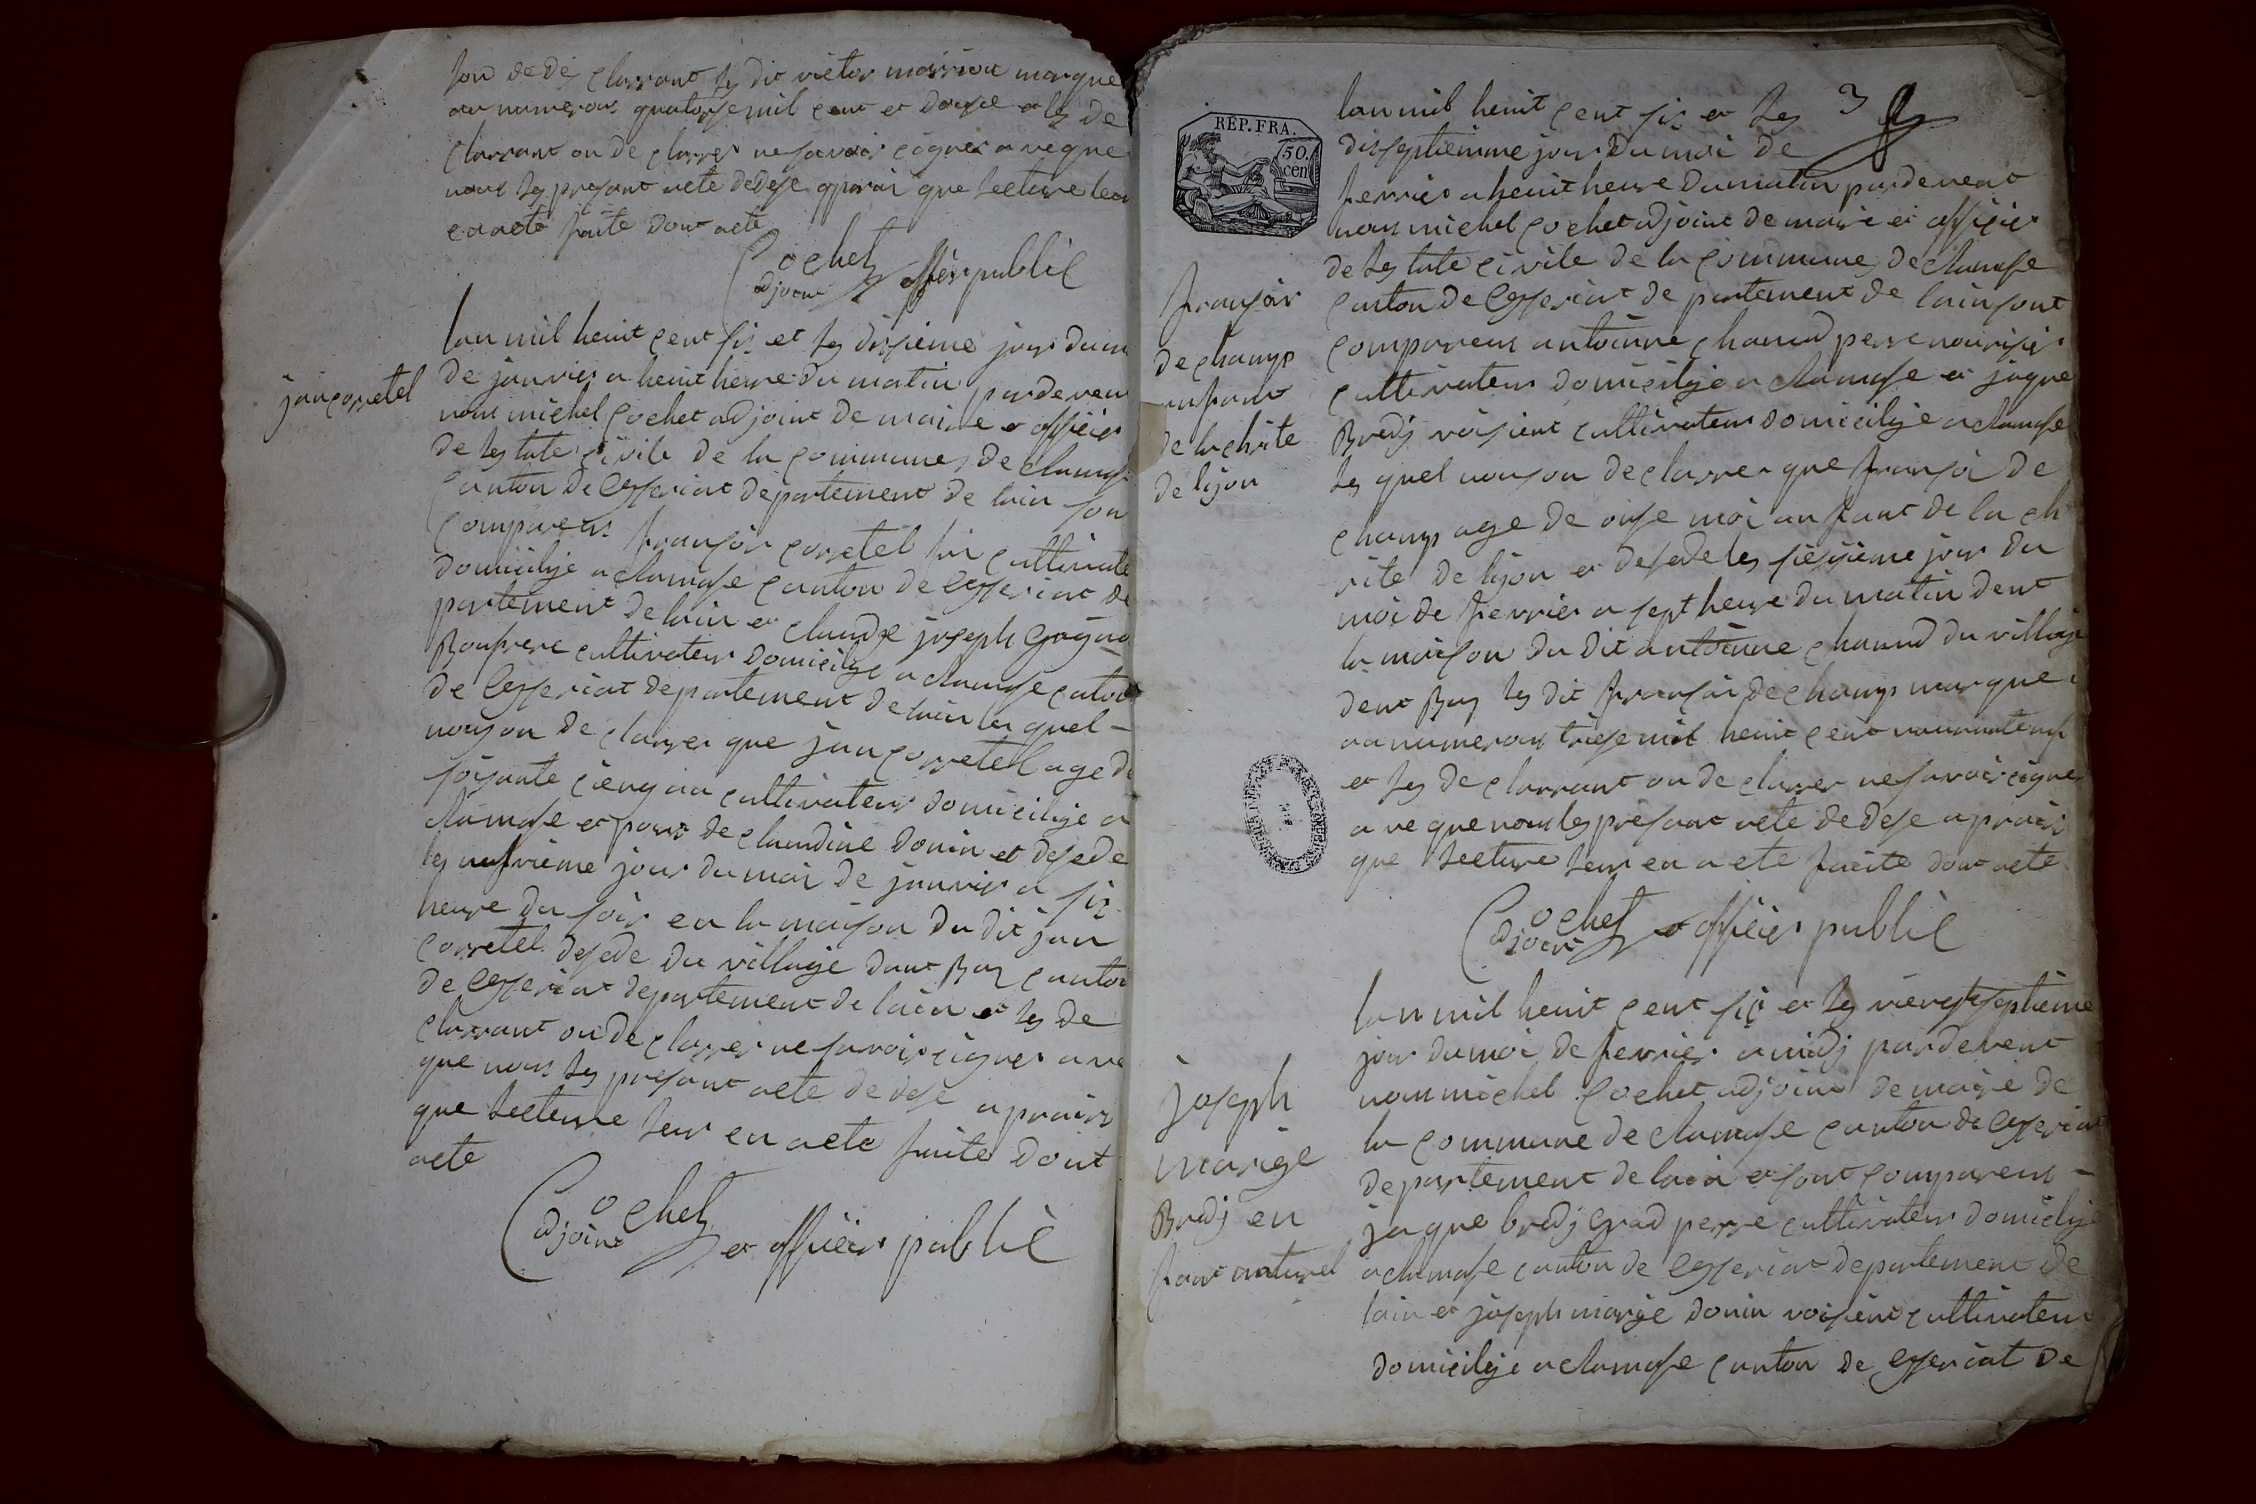 son de de clarrant les dit victor marion marque
au numerau quatorse mil cent et douse et les de
clarrant on de clarrer ne savoir cigner aveque
nous les presant acte dedese apprai que lecture leur
en acte faite dont acte
Cochet
adjoint et offisier public
jan corretel
lan mil heuit cent sis et les disieme jour du m
de janvier a heuit heure du matin pardeven
nous michel cochet adjoint de maire et offisier
de les tate civile de la commune de clamose
canton de Cesseriat departement de lain son
comparens fransois corretel fis cultivate
domicilije a clamose canton de Cesseriat de
partement de lain et claude joseph Gogno
Bonfrere cultivateur domicilije a clamose canton
de Cesseriat departement de lain les quel
nouson de clarrer que jan corretel age de
soisante cienq an cultivateur domicilije a
clamose et pour de claudine donin et desede
les neufvieme jour du moi de janvier a sis
heure du soir en la maison du dit jan
corretel desede du village dant Bas canton
de Cesseriat departement de lain et les de
clarrant on de clarrer ne savoir cigner a ve
que nous les presant acte de dese a prais
que lecteure leur en acte faite dont
acte
Cochet
adjoint et offisier public
3
REP. FRA.
50. cen
lan mil heuit cent sis et les
disseptiemme jour du moi de
fevrier a heuit heure du matin pardevent
nous michel cochet adjoint de maire et offisier
de les tate civile de la commune de clamose
canton de Cesseriat de partement de lain sont
comparens antoinne chanud perre nourisier
cultivateur domicilije a clamose et jaque
Bredj voisient cultivateur domicilije a clamose
les quel nouson de clarrer que fransoi de
champ age de onse moi anfant de la cha
rite de lijon et desede les siesieme jour du
moi de fevrier a sept heure du matin dent
la maison du dit antoinne chanud du village
dent Bas les dit fransoi de champ marque
au numerau triese mil heuit cent
et les de clarrant on de clarrer ne savoir cigner
a ve que nous les presant acte de dese a prais
que lecture leur en a ete faite dont acte
Cochet
adjoint et offisier public
fransois
de champ
anfant
de la chrite
de lijon
lan mil heuit cent sis et les vientseptieme
jour du moi de fevrier a midj pardevent
nous michel cochet adjoint de maire de
la commune de clamose canton de Cesseriat
departement de lain et sont comparens
jaque bredj Grad perre cultivateur domicilije
a clamose canton de Cesseriat departement de
lain et joseph marije donin voisient cultivateur
domicilije a clamose canton de Cesseriat de
joseph
marije
Bredj en
fant naturel